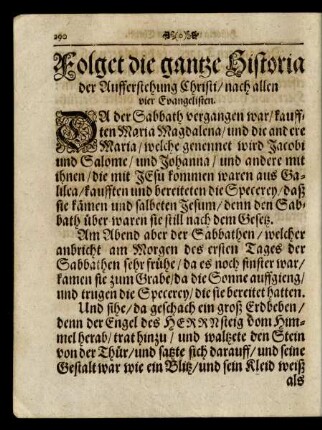 290
Folget die gantze Historia
der Aufferstehung Christi/nach allen
vier Evangelisten.
DA der Sabbath vergangen war/kauff-
ten Maria Magdalena/und die andere
Maria/welche genennet wird Jacobi
und Salome/und Johanna/und andere mit
ihnen/die mit JEsu kommen waren aus Ga-
lilea/kaufften und bereiteten die Specerey/daß
sie kämen und salbeten Jesum/denn den Sab-
bath über waren sie still nach dem Gesetz.
Am Abend aber der Sabbathen/welcher
anbricht am Morgen des ersten Tages der
Sabbathen sehr frühe/da es noch finster war/
kamen sie zum Grabe/da die Sonne auffgieng/
und trugen die Specerey/die sie bereitet hatten.
Und sihe/da geschach ein groß Erdbeben/
denn der Engel des HERRN steig vom Him-
mel herab/trat hinzu/und waltzete den Stein
von der Thür/und satzte sich darauff/und seine
Gestalt war wie ein Blitz/und sein Kleid weiß
als